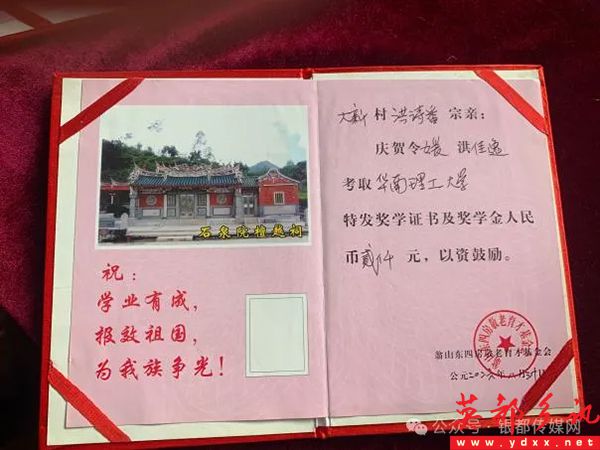 石泉院檀越祠
祝：
学业有成，
报效祖国，
为我族争光！
大新村洪诗番宗亲：
庆贺令媛 洪佳逸
考取华南理工大学
特发奖学证书及奖学金人民
币贰仟元，以资鼓励。
翁山东四房敬老育才基金会
公元二〇二六年八月三十日
公众号·银都传媒网
英都乡讯
www.ydxx.net